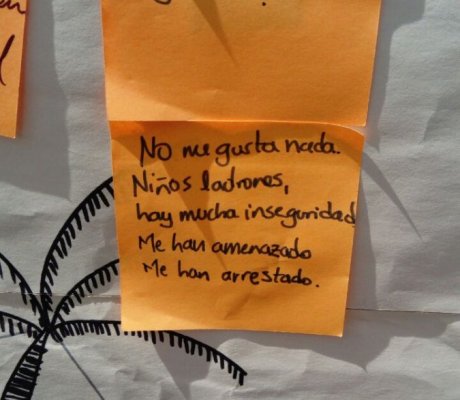 No me gusta nada.
Niños ladrones,
hay mucha inseguridad
Me han amenazado
Me han arrestado.